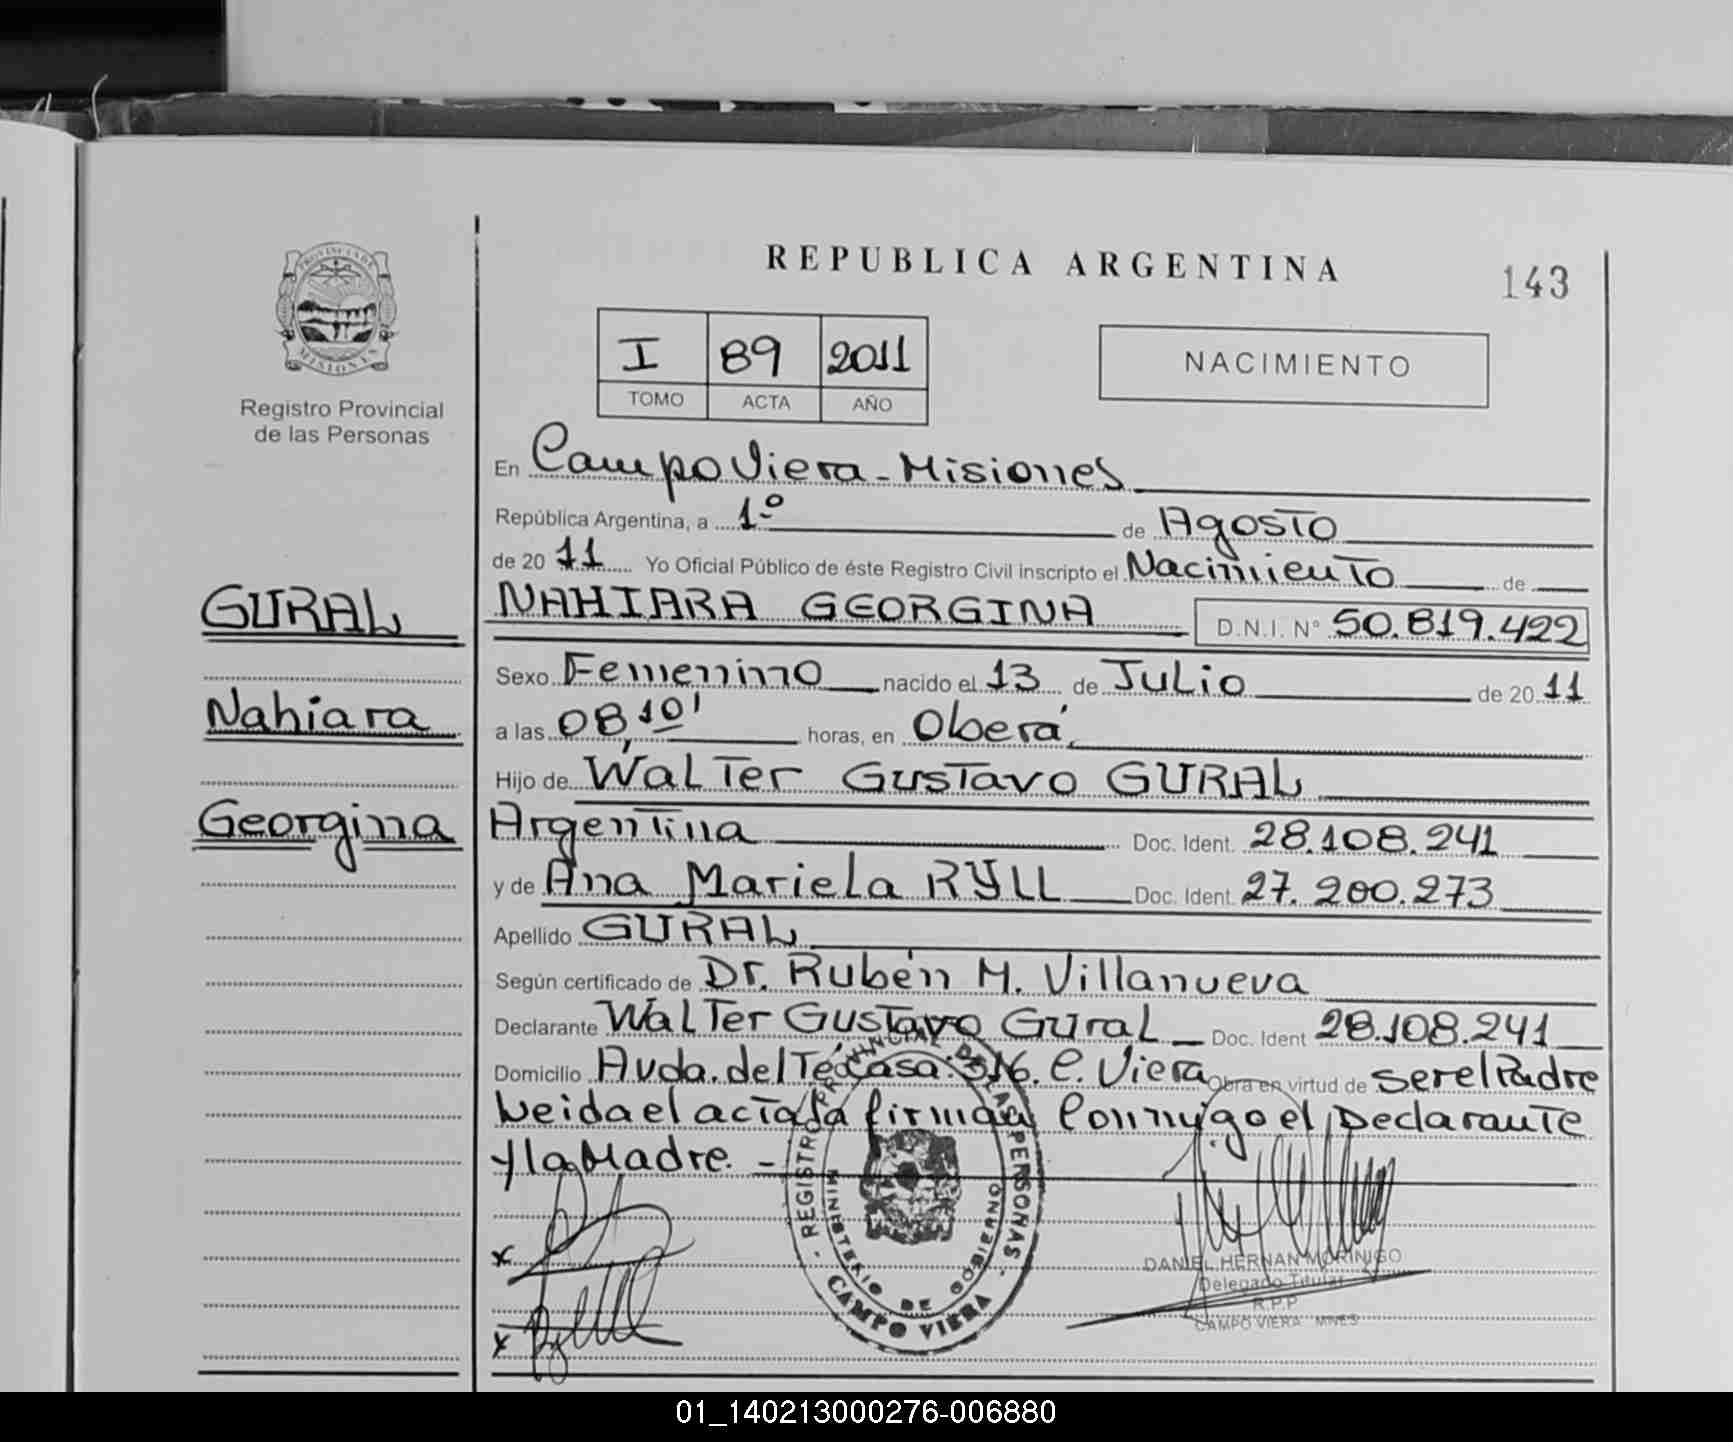 REPUBLICA ARGENTINA
143
PROVINCIA DE
MISIONES
Registro Provincial
de las Personas
I 89 2011
TOMO ACTA AÑO
NACIMIENTO
En Campo Viera - Misiones
República Argentina, a 1º de Agosto
de 20 11 Yo Oficial Público de éste Registro Civil inscripto el Nacimiento de
NAHIARA GEORGINA D.N.I. Nº 50.819.422
GURAL
Nahiara
Georgina
Sexo Femenino nacido el 13 de Julio de 20 11
a las 08,10' horas, en Oberá,
Hijo de Walter Gustavo GURAL
Argentina Doc. Ident. 28.108.241
y de Ana Mariela RYLL Doc. Ident. 27.200.273
Apellido GURAL
Según certificado de Dr. Rubén M. Villanueva
Declarante Walter Gustavo Gural Doc. Ident 28.108.241
Domicilio Avda. del Té casa: 316. C. Viera Obra en virtud de ser el Padre
Leida el acta la firman Conmigo el Declarante
y la Madre. -
REGISTRO PROVINCIAL DE LAS PERSONAS
MINISTERIO DE GOBIERNO
CAMPO VIERA
x
x
DANIEL HERNAN MORINIGO
Delegado Titular
R.P.P
CAMPO VIERA MNES
01_140213000276-006880